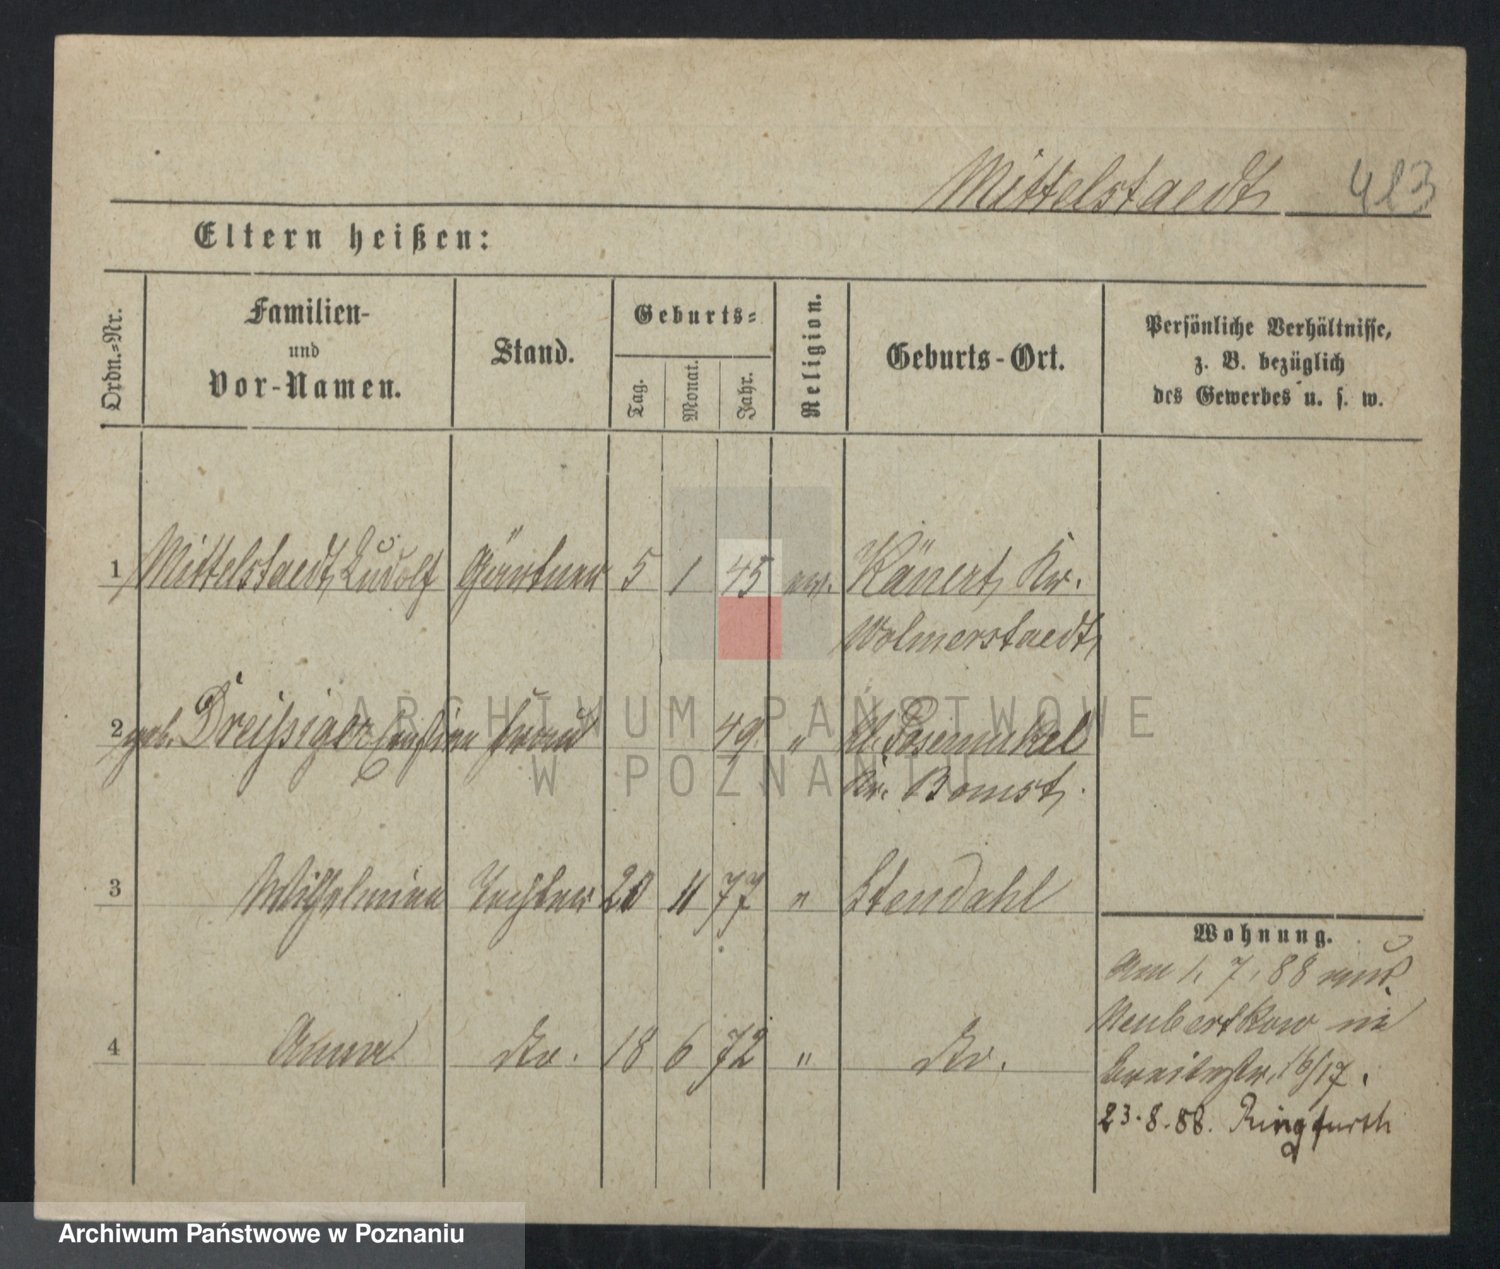 Mittelstaedt 413
Eltern heißen:
Ordn.-Nr.
Familien-
und
Vor-Namen.
Stand.
Geburts-
Tag.
Monat.
Jahr.
Religion.
Geburts-Ort.
Persönliche Verhältnisse,
z. B. bezüglich
des Gewerbes u. s. w.
1 Mittelstaedt, Rudolf Gärtner 5 1 45 ev. Känert, Kr.
Wolmerstaedt,
2 geb. Dreißiger Frau 49 " Kl. Posemukel
Kr. Bomst,
3 Wilhelmine Tochter 20 11 77 " Stendahl
4 Anna do. 18 6 72 " do.
Wohnung.
Am 1. 7. 88 aus
Neubertkow in
Breitestr. 16/17.
23.8.88. Ringfurth
ARCHIWUM PAŃSTWOWE
W POZNANIU
Archiwum Państwowe w Poznaniu